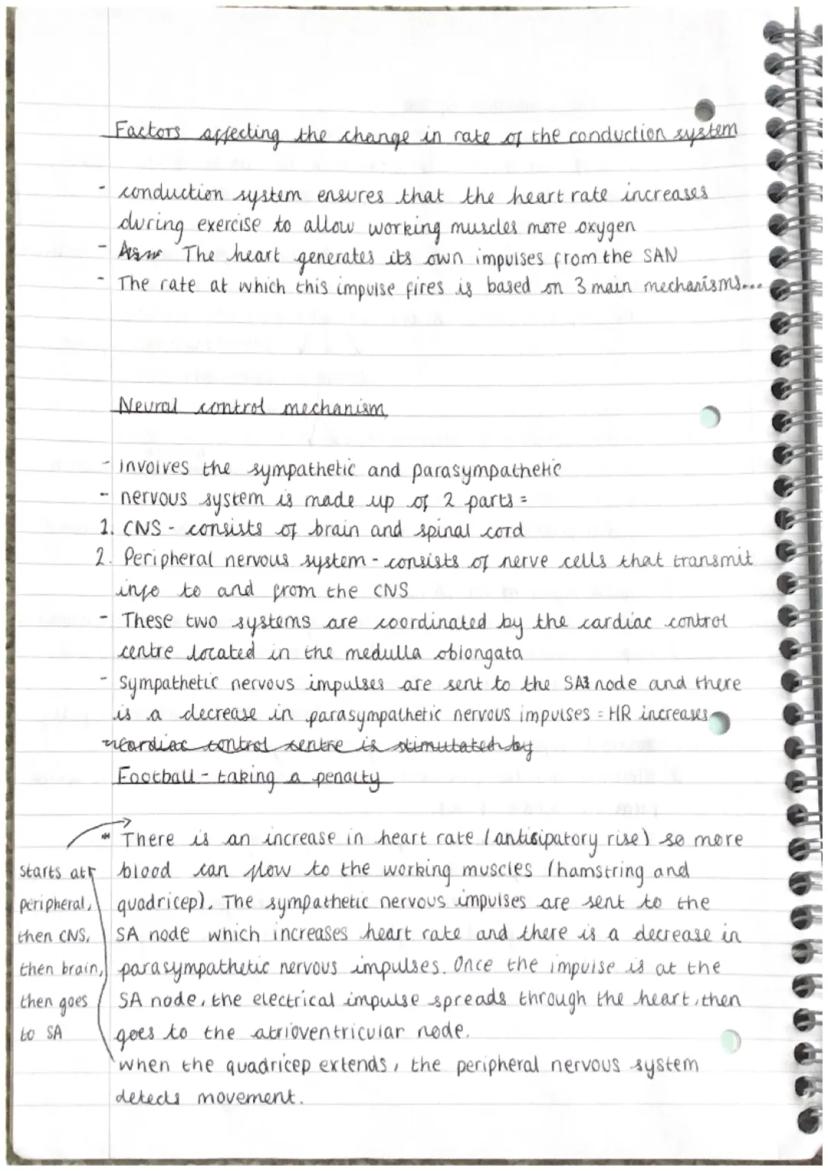 Factors affecting the change in rate of the conduction system
- conduction system ensures that the heart rate increases
during exercise to allow working muscles more oxygen
- The heart generates its own impulses from the SAN
- The rate at which this impulse fires is based on 3 main mechanisms...
Neural control mechanism
- involves the sympathetic and parasympathetic
- nervous system is made up of 2 parts =
1. CNS - consists of brain and spinal cord
2. Peripheral nervous system - consists of nerve cells that transmit
info to and from the CNS
- These two systems are coordinated by the cardiac control
centre located in the medulla oblongata
- Sympathetic nervous impulses are sent to the SA node and there
is a decrease in parasympathetic nervous impulses = HR increases
cardiac control centre is stimulated by
Football - taking a penalty
There is an increase in heart rate (antisipatory rise) so more
blood can flow to the working muscles (hamstring and
quadricep). The sympathetic nervous impulses are sent to the
SA node which increases heart rate and there is a decrease in
parasympathetic nervous impulses. Once the impulse is at the
SA node, the electrical impulse spreads through the heart, then
goes to the atrioventricular node.
when the quadricep extends, the peripheral nervous system
detects movement.
starts at
peripheral,
then CNS,
then brain,
then goes
to SA